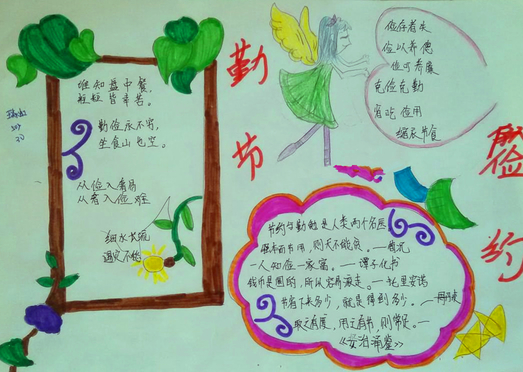 勤
俭
节
约
谁知盘中餐
粒粒皆辛苦。
勤俭永不穷,
坐食山也空。
从俭入奢易
从奢入俭难
细水长流
遇灾不愁
俭存奢失
俭以养德
俭可养廉
克俭克勤
省吃俭用
缩衣节食
节约与勤勉是人类两个名医
一人知俭一家富。—谭子化书
钱币是圆的,所以容易滚走。—
节省下来多少,就是得到多少。—
取之有度,用之有节,则常足。—
《资治通鉴》